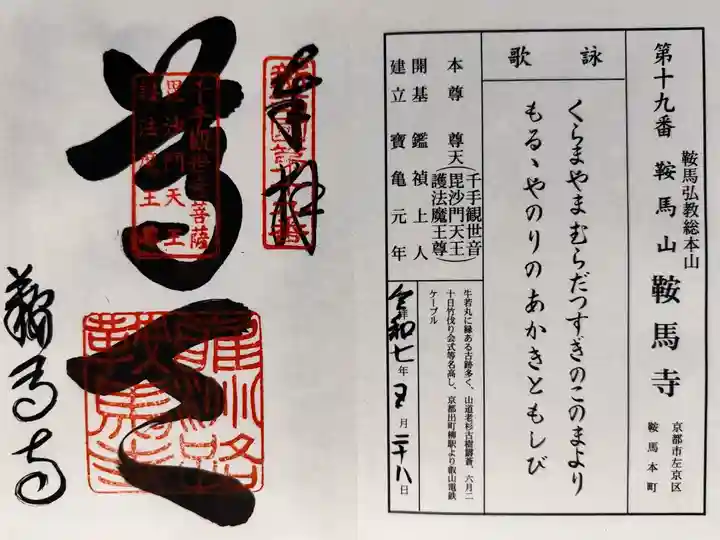 第十九番 鞍馬山 鞍馬寺
鞍馬弘教総本山
京都市左京区
鞍馬本町
詠歌
くらまやま むらだつすぎのこのまより
もるゝやのりの あかきともしび
本尊 尊天(千手観世音
毘沙門天王
護法魔王尊)
開基 鑑禎上人
建立 寶亀元年
牛若丸に縁ある古跡多く、山道老杉古樹鬱蒼、六月二
十日竹伐り会式等名高し、京都出町柳駅より叡山電鉄
ケーブル
令和七年五月二十八日
奉拝
千手観世音菩薩
毘沙門天王
護法魔王尊
尊天
鞍馬寺